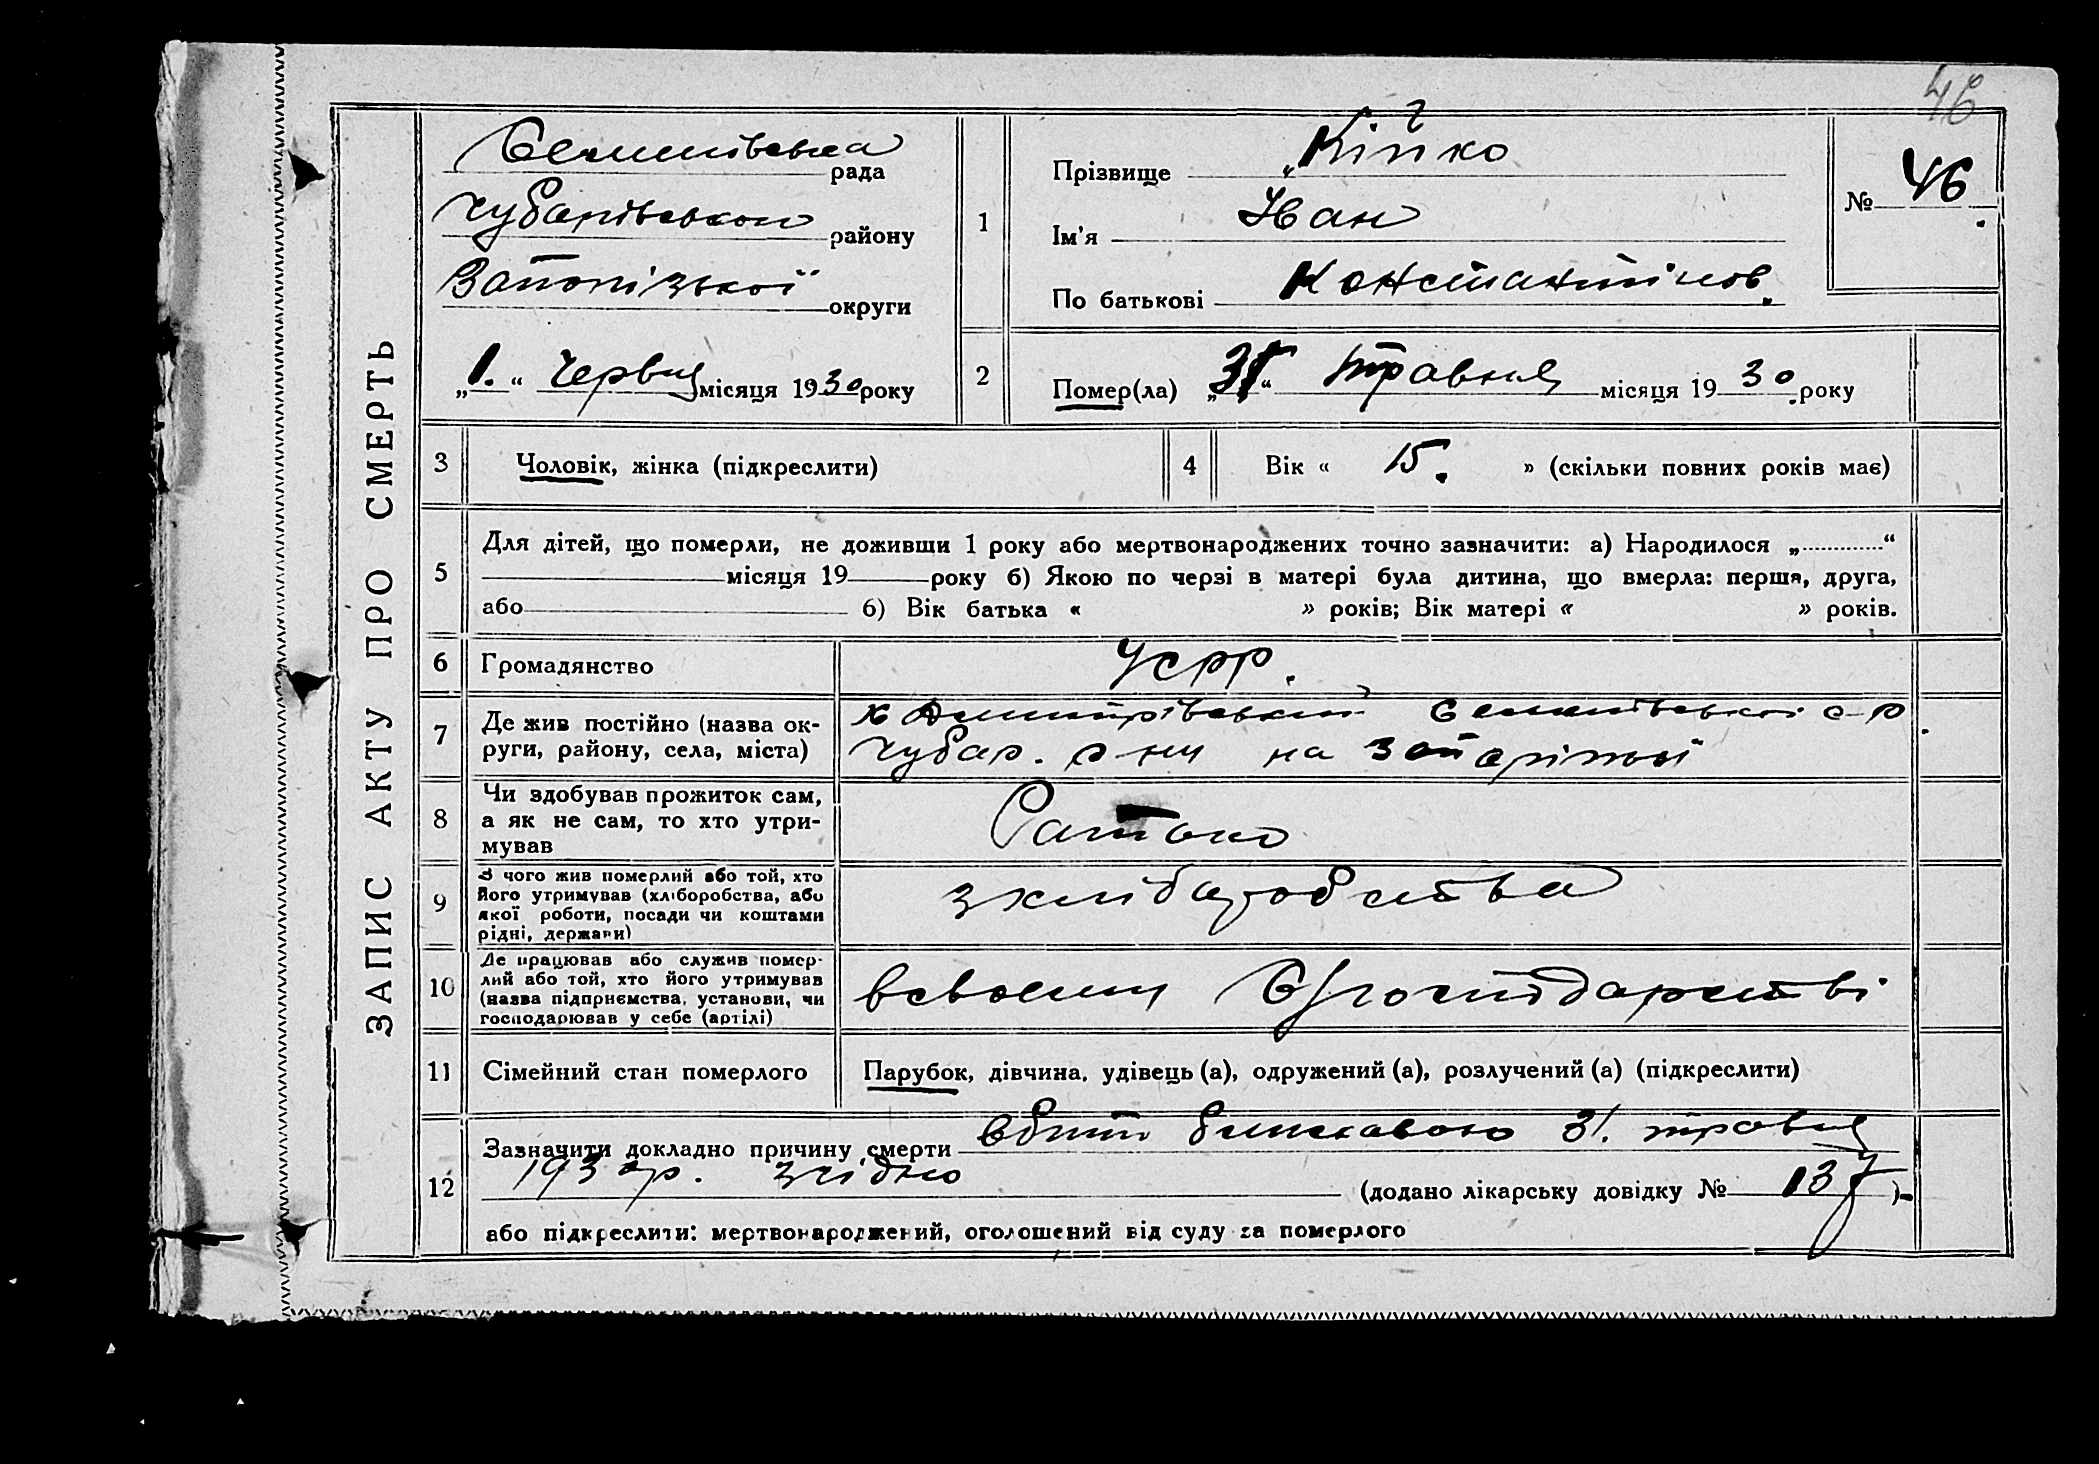 46
ЗАПИС АКТУ ПРО СМЕРТЬ
Семенівська рада
Чубарівського району
Запорізької округи
„1.“ Червня місяця 1930 року
1
Прізвище Кійко
Ім'я Іван
По батькові Константінов.
№ 46.
2
Помер(ла) „31“ Травня місяця 1930. року
3 Чоловік, жінка (підкреслити)
4 Вік « 15. » (скільки повних років має)
5
Для дітей, що померли, не доживши 1 року або мертвонароджених точно зазначити: а) Народилося „............“
місяця 19 року б) Якою по черзі в матері була дитина, що вмерла: перша, друга,
або б) Вік батька « » років; Вік матері « » років.
6 Громадянство УСРР.
7 Де жив постійно (назва ок-
руги, району, села, міста)
х Дмитрівський Семенівської с-р
Чубар. р-ну на Запоріжжі
8 Чи здобував прожиток сам,
а як не сам, то хто утри-
мував
9 З чого жив померлий або той, хто
його утримував (хліборобства, або
якої роботи, посади чи коштами
рідні, держави)
з хліборобства
10 Де працював або служив помер-
лий або той, хто його утримував
(назва підприємства, установи, чи
господарював у себе (артілі)
в своєму господарстві
11 Сімейний стан померлого
Парубок, дівчина, удівець (а), одружений (а), розлучений (а) (підкреслити)
12
Зазначити докладно причину смерти вбитий блискавкою 31. травня
1930 р. згідно (додано лікарську довідку № 137)
або підкреслити: мертвонароджений, оголошений від суду за померлого